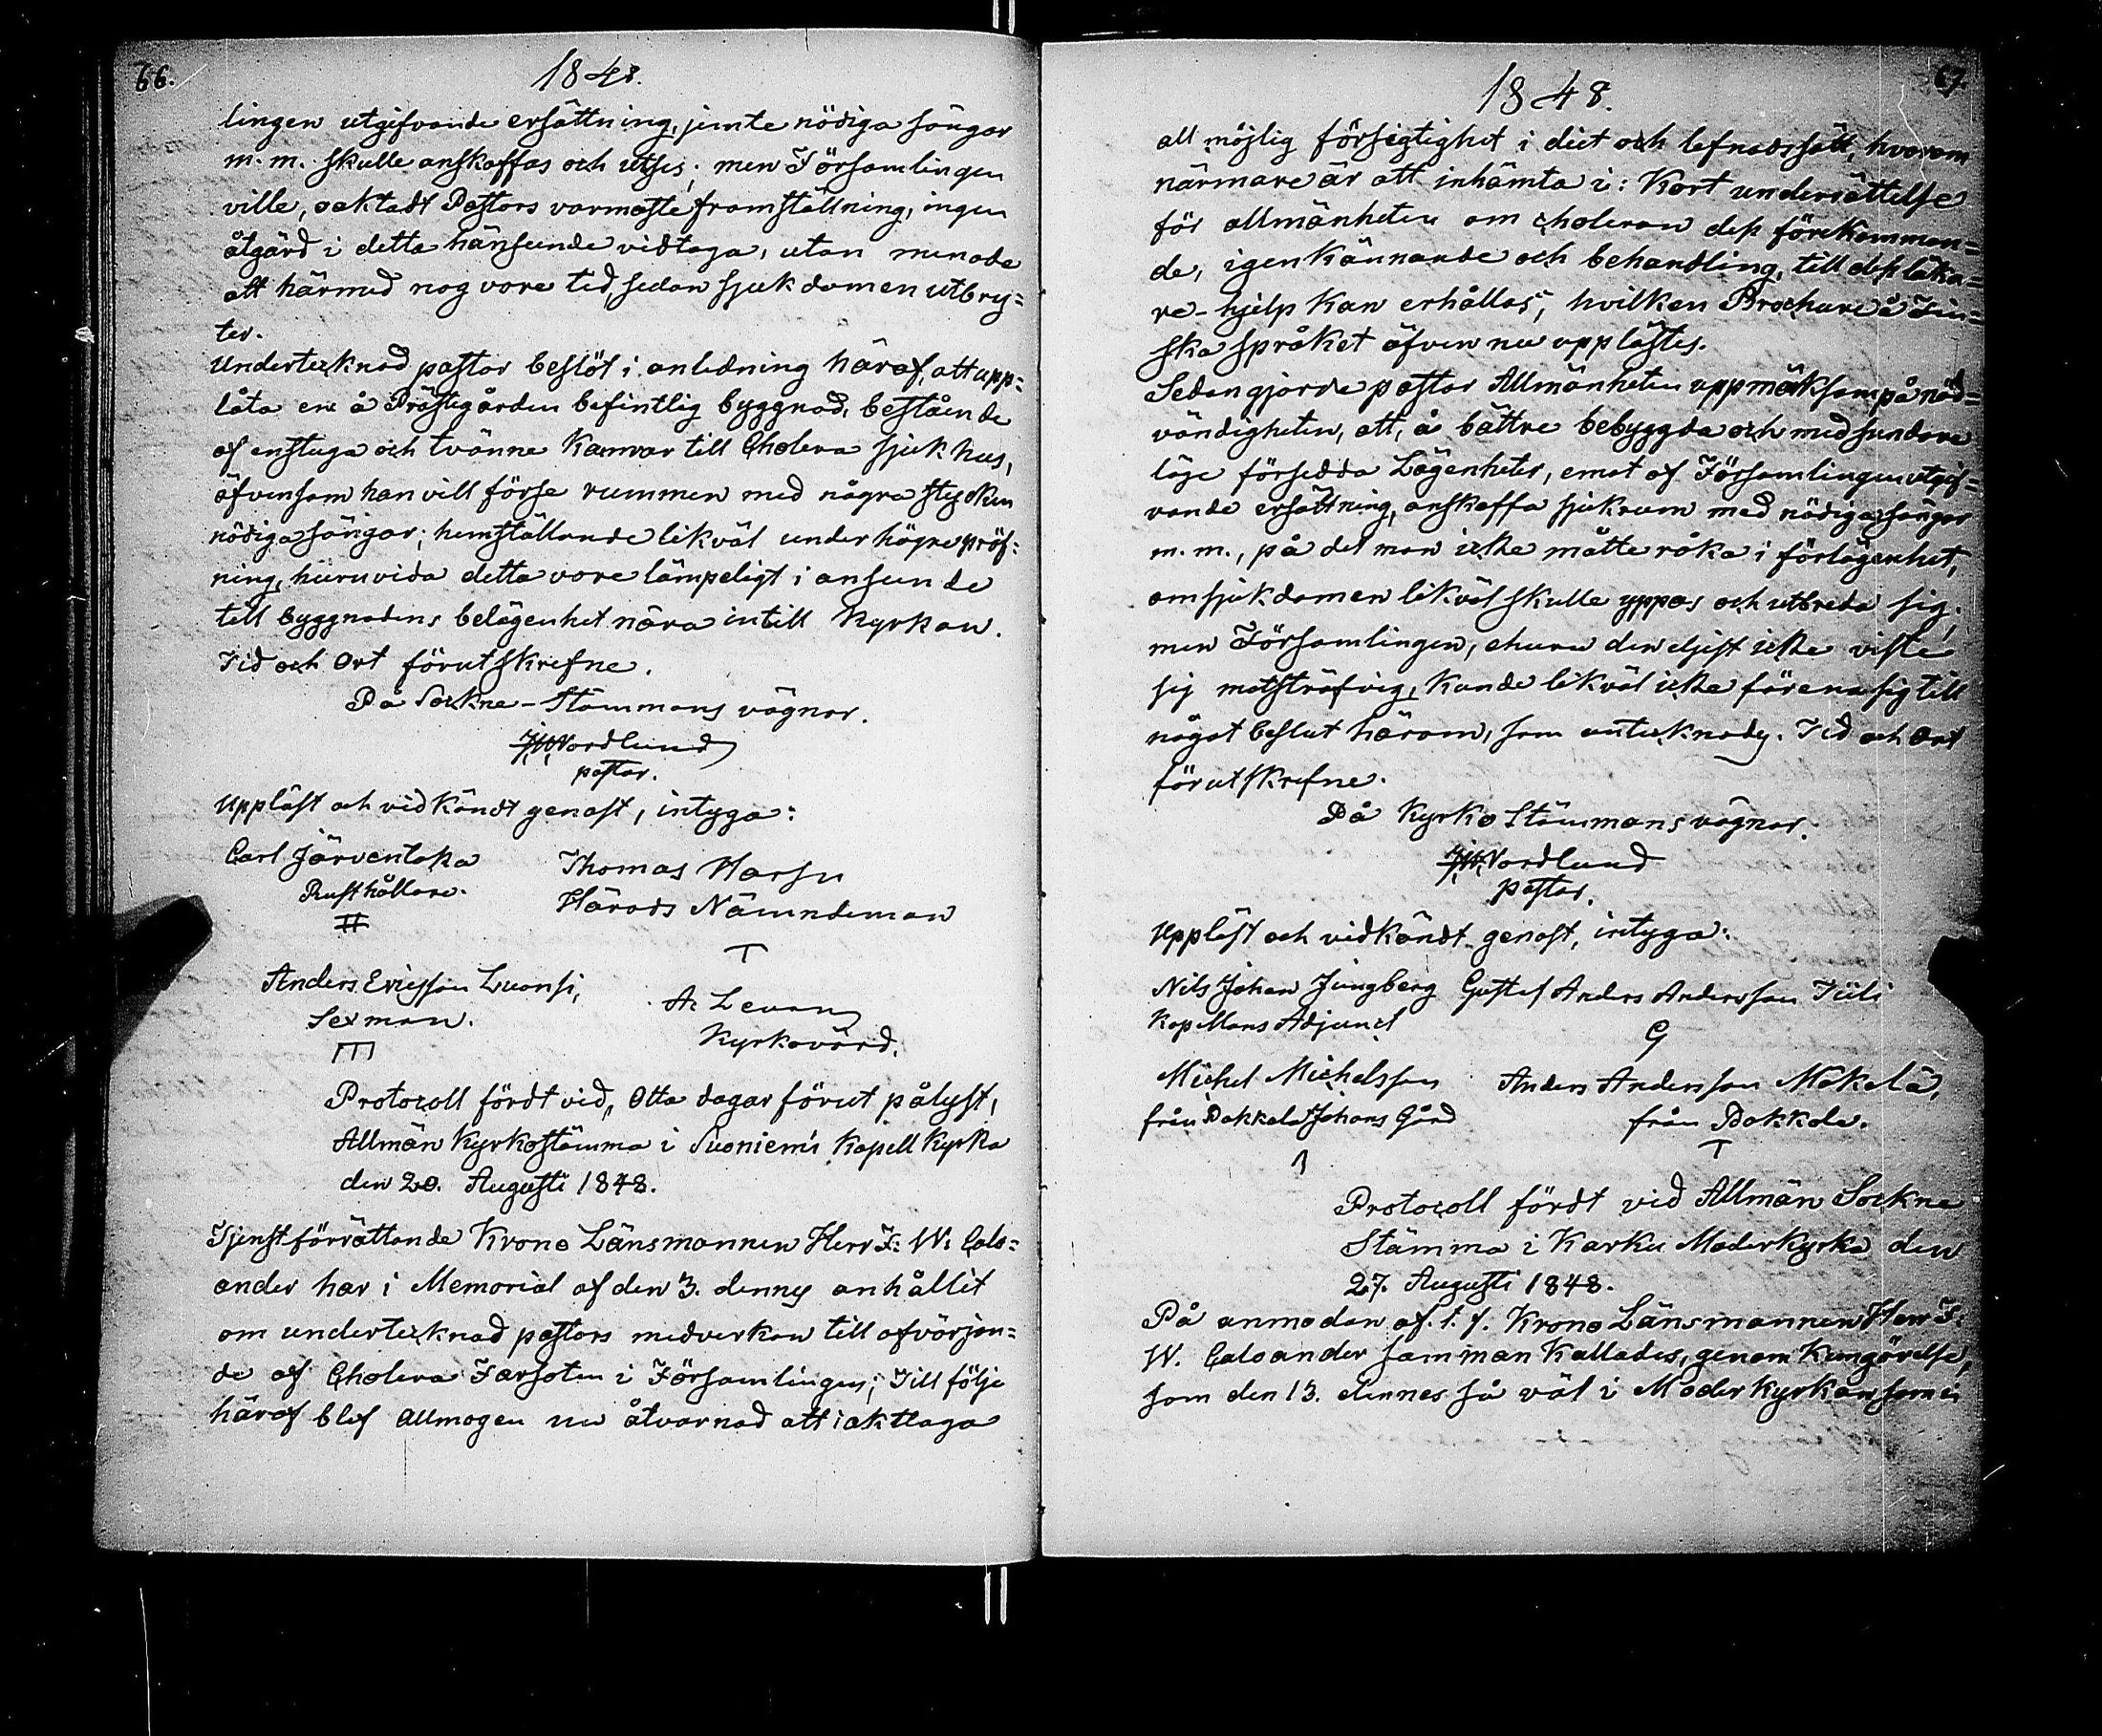 66.
1848.
lingen utgifvande ersättning, jemte nödiga sängar
m. m. skulle anskaffas och utses; men Församlingen
ville, oaktadt Pastors varmaste framställning, ingen
åtgärd i detta hänseende vidtaga, utan menade
att härmed nog vore tid, sedan sjukdomen utbry=
ter.
Undertecknad pastor beslöt i anledning häraf, att upp=
låta en å Prästegården befintlig byggnad, bestående
af en stuga och tvänne Kamrar till Cholera sjukhus,
äfvensom han vill förse rummen med några stycken
nödiga sängar; hemställande likväl under högre pröf=
ning, huruvida detta vore lämpeligt i anseende
till byggnadens belägenhet nära intill Kyrkan.
Tid och Ort förutskrefne.
På Sockne-Stämmans vägnar.
J W Nordlund
pastor.
Uppläst och vidkändt genast, intyga:
Carl Järventaka Thomas Harsu
Rusthållare. Härads Nämndeman
Anders Ericsson Luonsi, A. Levan
Sexman. Kyrkovärd.
Protocoll fördt vid, Otta dagar förut pålyst,
Allmän Kyrkostämma i Suoniemi Kapell Kyrka
den 20. Augusti 1848.
Tjenstförrättande Krono Länsmannen Herr F. W. Calo=
ander har i Memorial af den 3. dennes anhållit
om undertecknad pastors medverkan till afvärjan=
de af Cholera Farsoten i Församlingen; Till följe
häraf blef Allmogen nu åtvarnad att iakttaga
67.
1848.
all möjlig försigtighet i diet och lefnadssätt, hvarom
närmare är att inhämta i: Kort underrättelse
för allmänheten om choleran dess förekomman=
de, igenkännande och behandling, till dess läka=
re-hjelp kan erhållas, hvilken Brochure å Fin=
ska språket äfven nu upplästes.
Sedan gjorde pastor Allmänheten uppmärksam på nöd=
vändigheten, att, å bättre bebyggda och med sundare
läge försedda Lägenheter, emot af Församlingen utgif=
vande ersättning, anskaffa sjukrum med nödiga sängar
m. m., på det man icke måtte råka i förlägenhet,
om sjukdomen likväl skulle yppas och utbreda sig;
men Församlingen, ehuru den eljest icke viste
sig motsträfvig, kunde likväl icke förena sig till
något beslut härom, som antecknades. Tid och Ort
förutskrefne.
På Kyrko Stämmans vägnar.
J W Nordlund
pastor.
Uppläst och vidkändt genast, intyga:
Nils Johan Jungberg Gustaf Anders Andersson Tüli
Kapellans Adjunct G
Michel Michelsson Anders Andersson Mäkelä,
från Pakkala Johans Gård från Pakkala.
Protocoll fördt vid Allmän Sockne
Stämma i Karku Moderkyrka den
27. Augusti 1848.
På anmodan af t. f. Krono Länsmannen Herr F.
W. Caloander sammankallades, genom Kungörelse,
som den 13. dennes så väl i Moderkyrkan som i